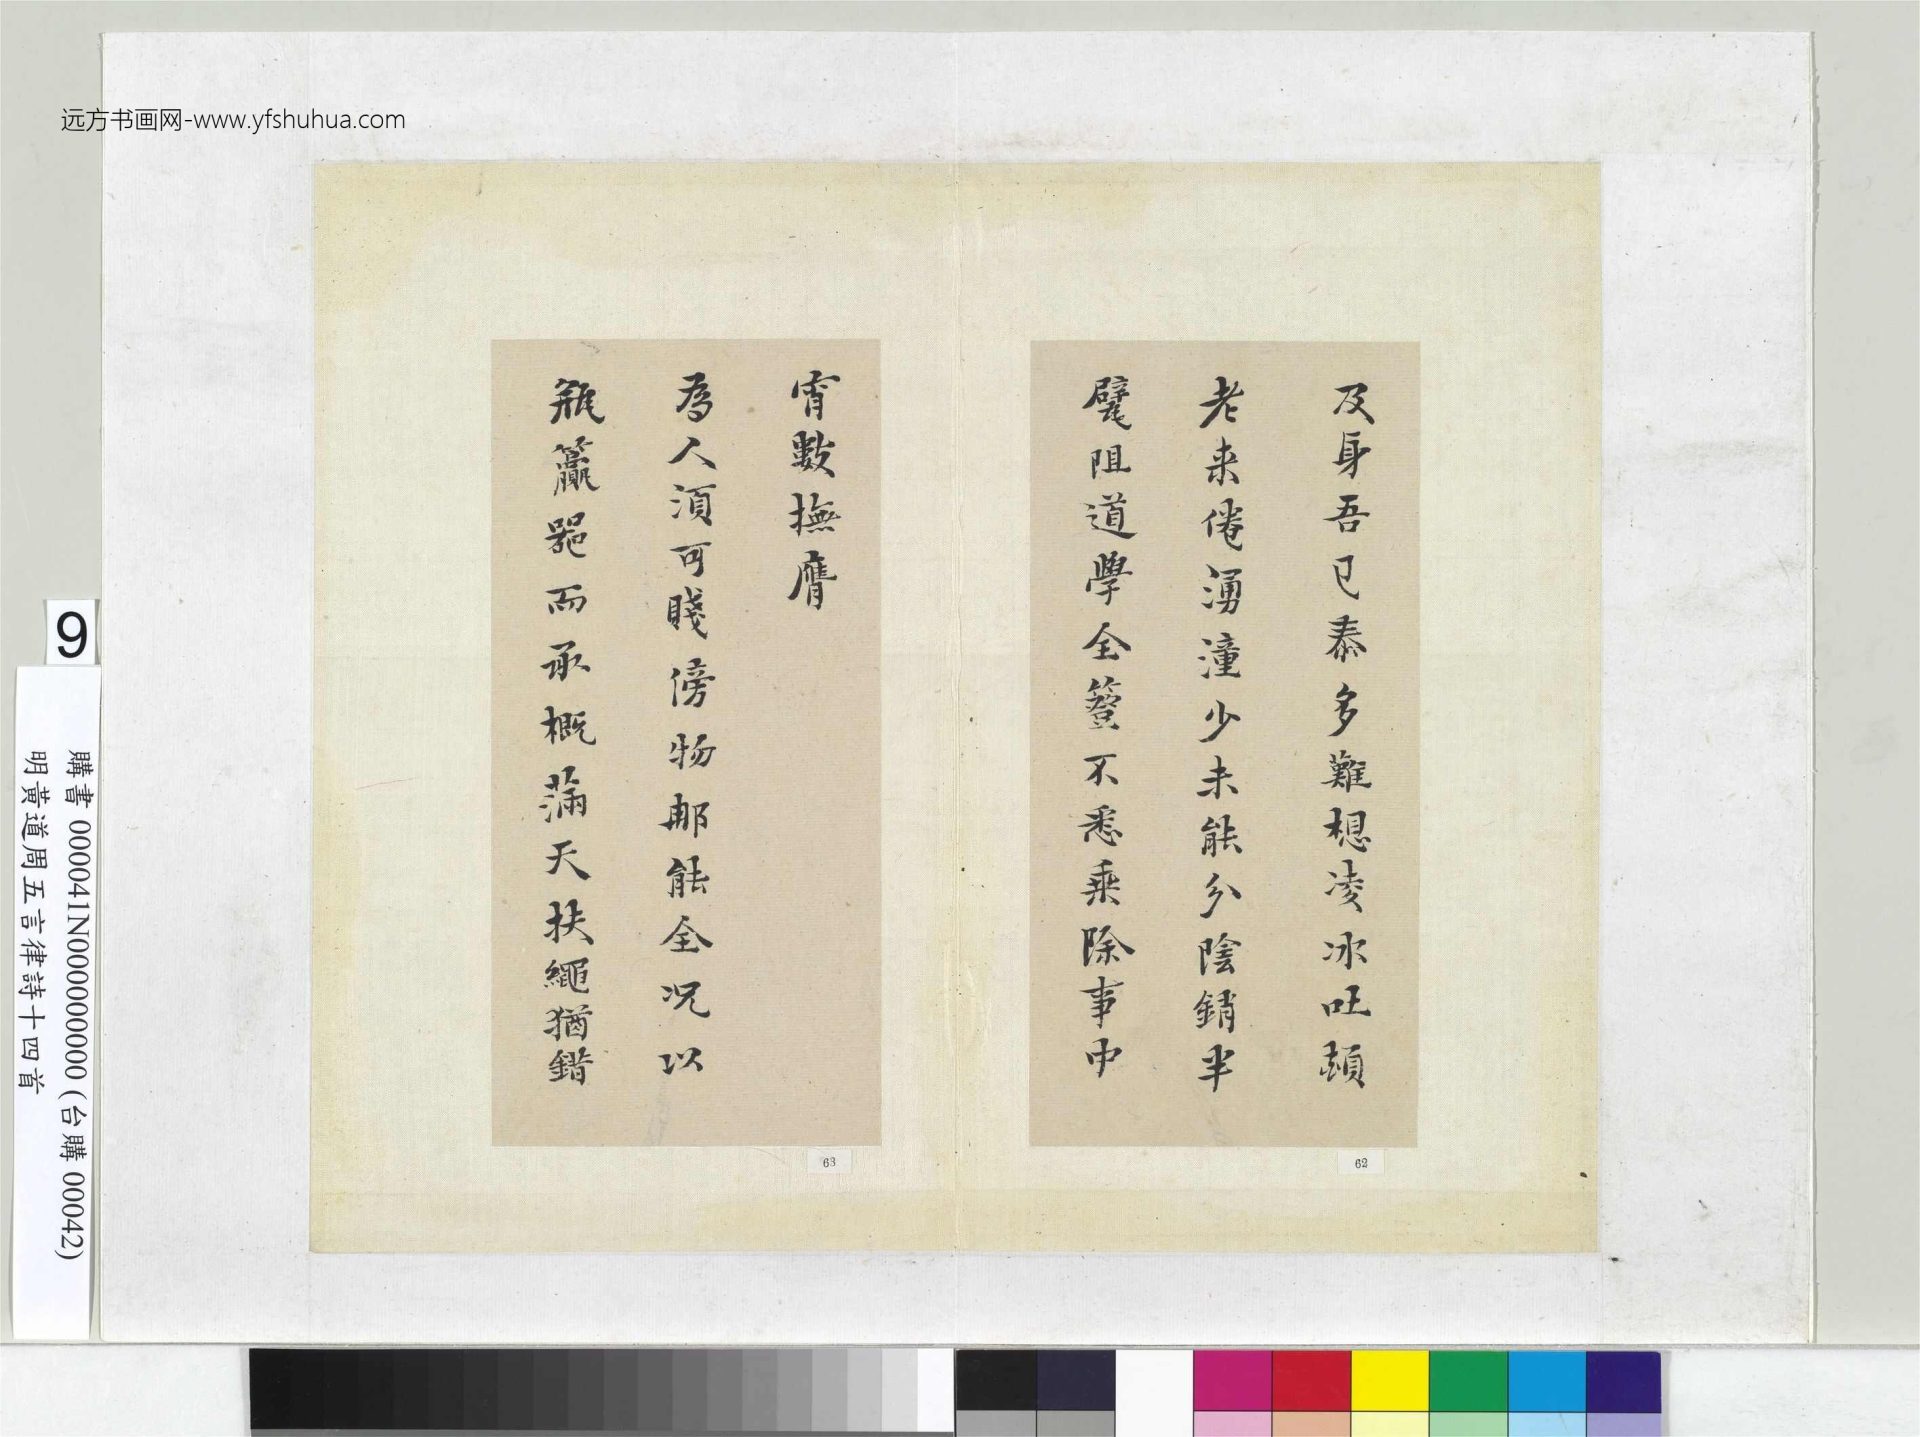 远方书画网-www.yfshuhua.com
及身吾已泰多難想凌冰吐頞
老来倦湧潼少未能分陰銷半
躄阻道學全簦不悉乘除事中
宵數撫膺
為人須可賤傍物那能全况以
瓶籯器而承概滿天扶繩猶錯
62
63
9
購書 000041N000000000 (台購 00042)
明黃道周五言律詩十四首